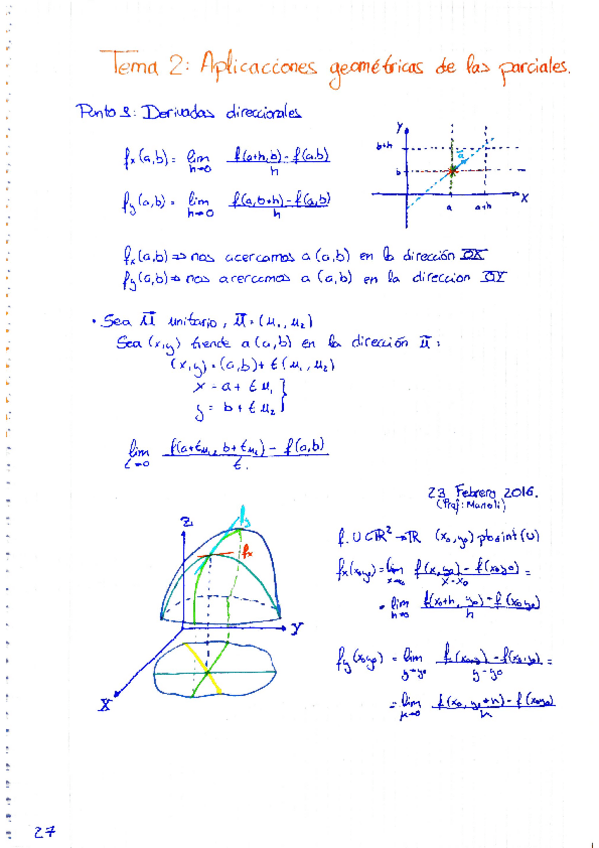 Tema 2: Aplicaciones geométricas de las parciales.
Punto 3: Derivadas direccionales
fx(a,b) = lim h→0 f(a+h,b) - f(a,b) / h
fy(a,b) = lim h→0 f(a,b+h) - f(a,b) / h
Y
b+h
b
ū
a
a+h
X
fx(a,b) ⇒ nos acercamos a (a,b) en la dirección OX
fy(a,b) ⇒ nos acercamos a (a,b) en la direccion OY
• Sea ū unitario, ū = (u₁, u₂)
Sea (x,y) tiende a (a,b) en la dirección ū:
(x,y) = (a,b) + t(u₁, u₂)
x = a + t u₁
y = b + t u₂
lim t→0 f(a+tu₁, b+tu₂) - f(a,b) / t.
23 Febrero 2016.
(Prof: Manoli)
f: U⊂ℝ²→ℝ (x₀,y₀) pto int(U)
fx(x₀y₀) = lim x→x₀ f(x,y₀) - f(x₀y₀) / x-x₀ =
= lim h→0 f(x₀+h, y₀) - f(x₀y₀) / h
fy(x₀y₀) = lim y→y₀ - f(x₀,y₀) / y-y₀ =
= lim f(x₀, y₀+h) - f(x₀y₀) / h
Z
fy
fx
Y
X
27